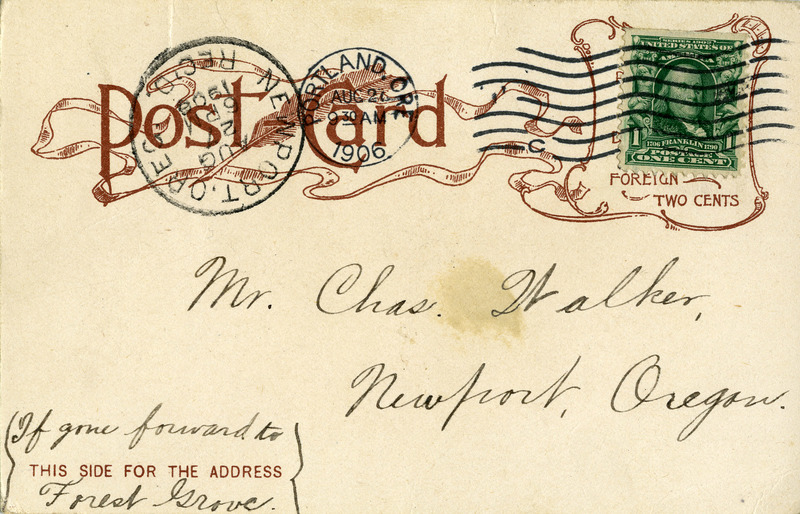 Post Card
NEWPORT, OREGON
REC'D
AUG
PORTLAND, ORE.
AUG 26
9 30 AM
1906
C
SERIES 1902
UNITED STATES OF
AMERICA
1706 FRANKLIN 1790
POSTAGE
ONE CENT
FOREIGN
TWO CENTS
Mr. Chas. Walker,
Newport, Oregon.
If gone forward to
THIS SIDE FOR THE ADDRESS
Forest Grove.